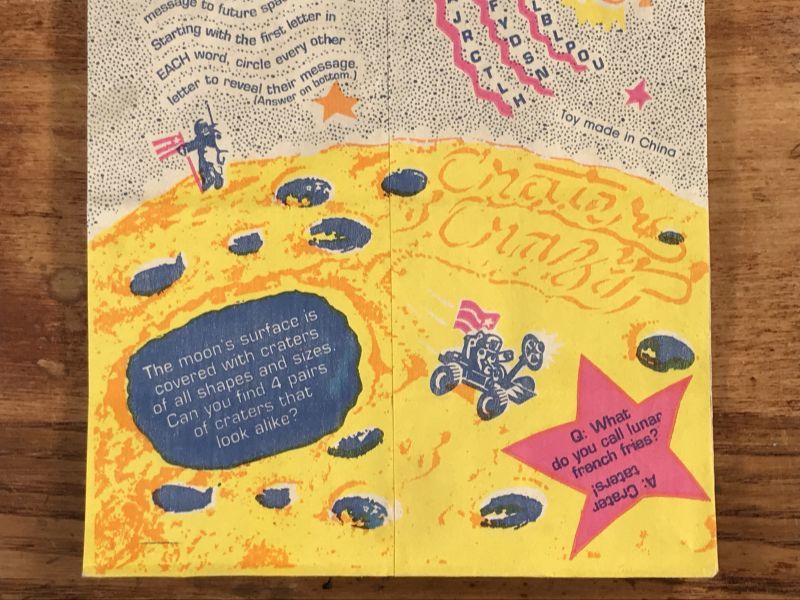 message to future
Starting with the first letter in
EACH word, circle every other
letter to reveal their message.
(Answer on bottom.)
JRCTLH
FYDSN
LBLPOU
Toy made in China
Crazy
The moon's surface is
covered with craters
of all shapes and sizes.
Can you find 4 pairs
of craters that
look alike?
Q: What
do you call lunar
french fries?
A: Crater
taters!